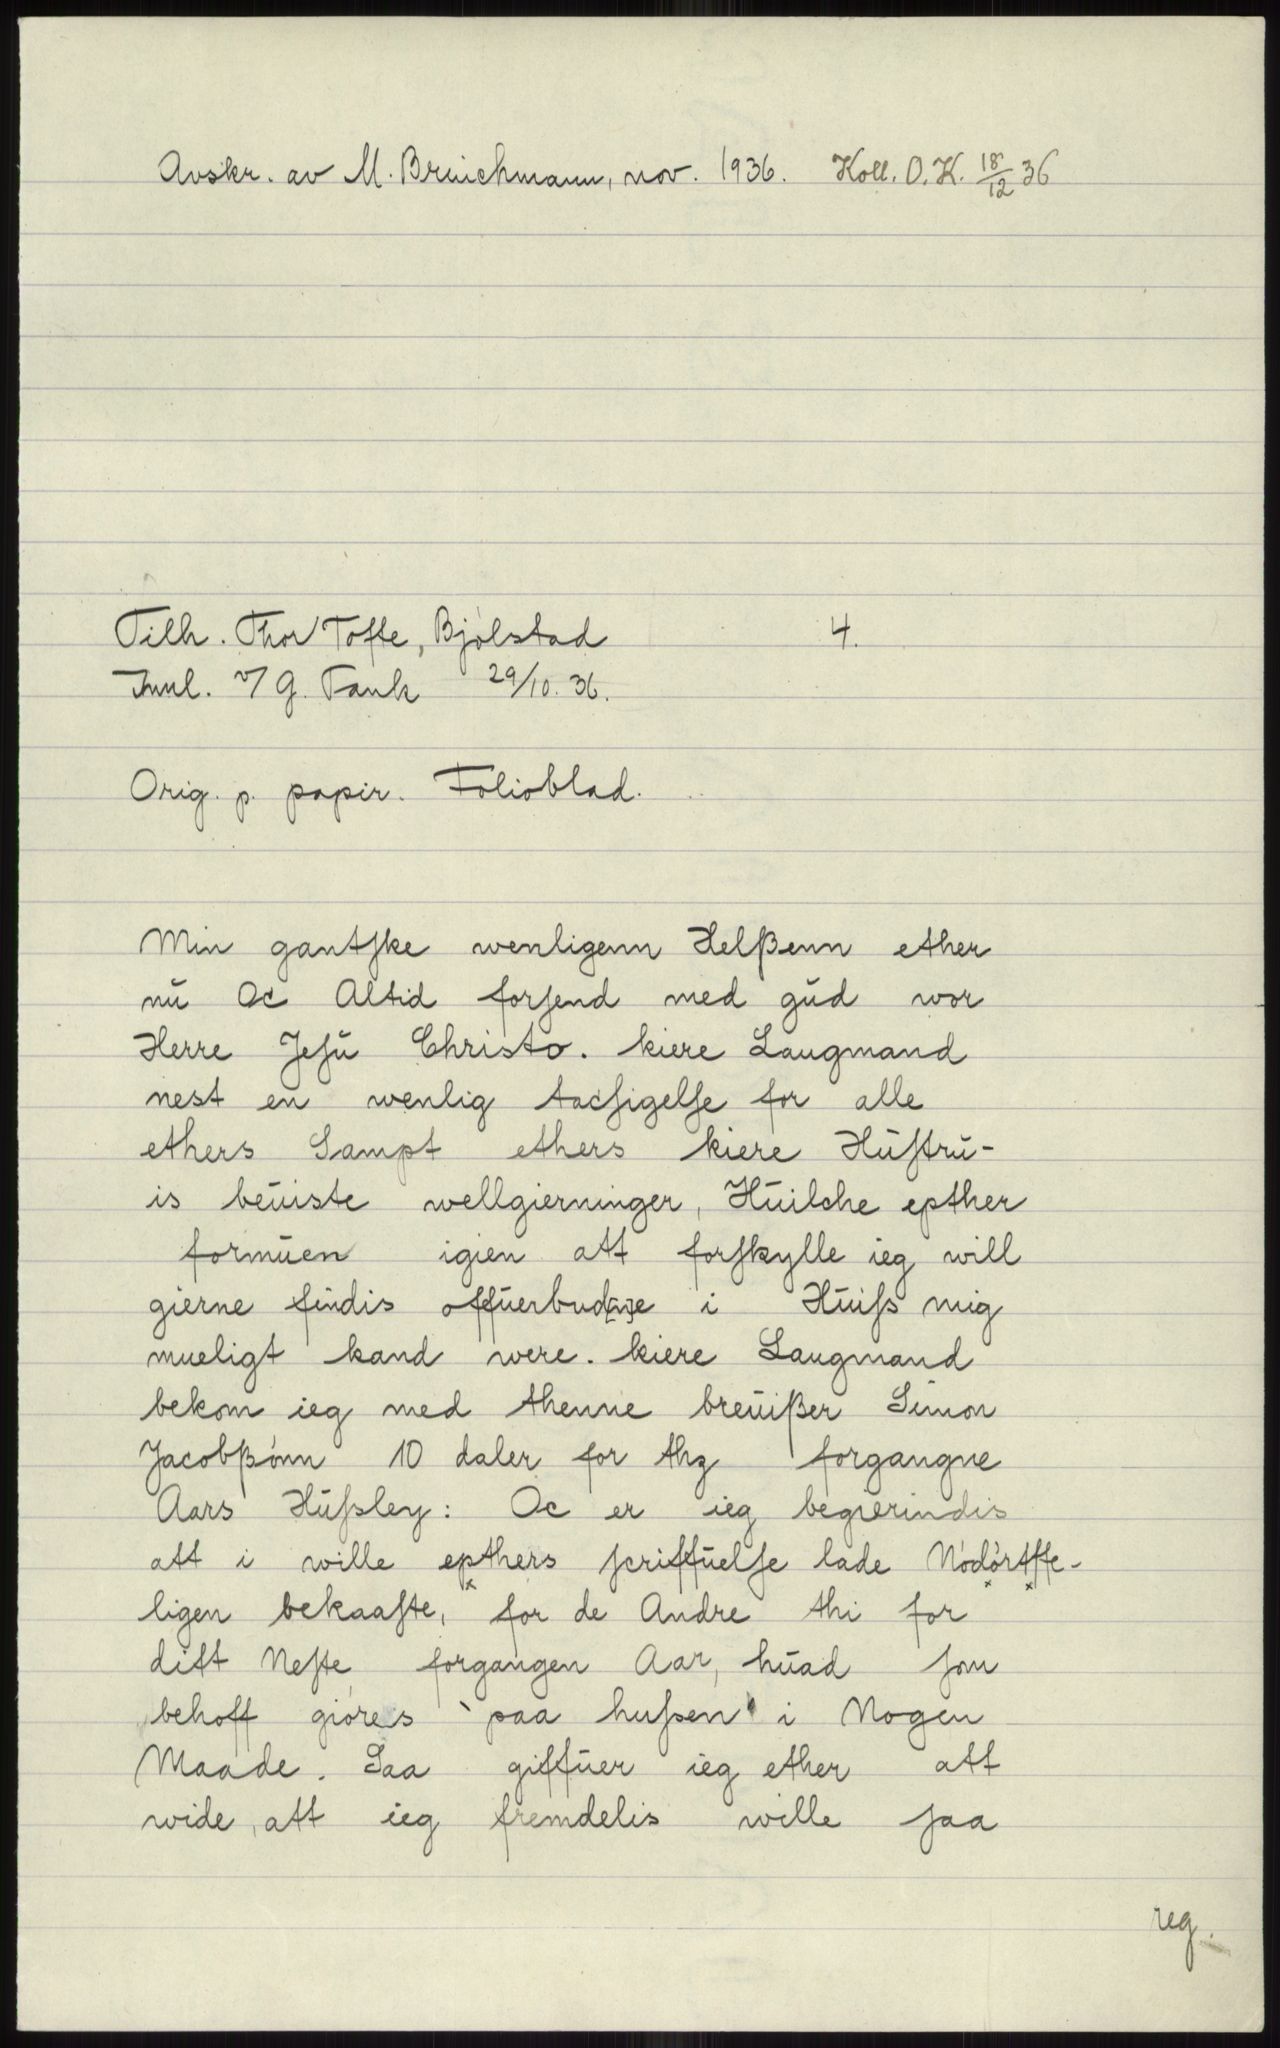 Avskr. av M. Bruichmann, nov. 1936. Koll. O. K. 18/12 36
Tilh. Thor Tofte, Bjølstad 4.
Innl. v/ G. Tank 29/10. 36.
Orig. p. papir. Folioblad.
Min gantſke wenligenn Helßenn ether
nŭ Oc Altid forſend med gŭd wor
Herre Jeſŭ Christo. kiere Laugmand
nest en wenlig tacſigelſe for alle
ethers Sampt ethers kiere Hŭſtrŭ-
is beŭiste wellgierninger, Hŭilche epther
formŭen igien att forſkylle ieg will
gierne findis offŭerbud[n]e i Hŭiſs mig
mueligt kand were. kiere Laugmand
bekom ieg med thenne breŭißer Simon
Jacobßønn 10 daler for thz forgangne
Aars Hŭſsley: Oc er ieg begierindis
att i wille epthers ſcriffŭelſe lade Nødørtffe-
ligen bekaaſte, for de Andre thi for
ditt Neſte forgangen Aar, hŭad ſom
behoff giøres paa huſsen i Nogen
Maade. Saa giffŭer ieg ether att
wide, att ieg fremdelis wille ſaa
reg.